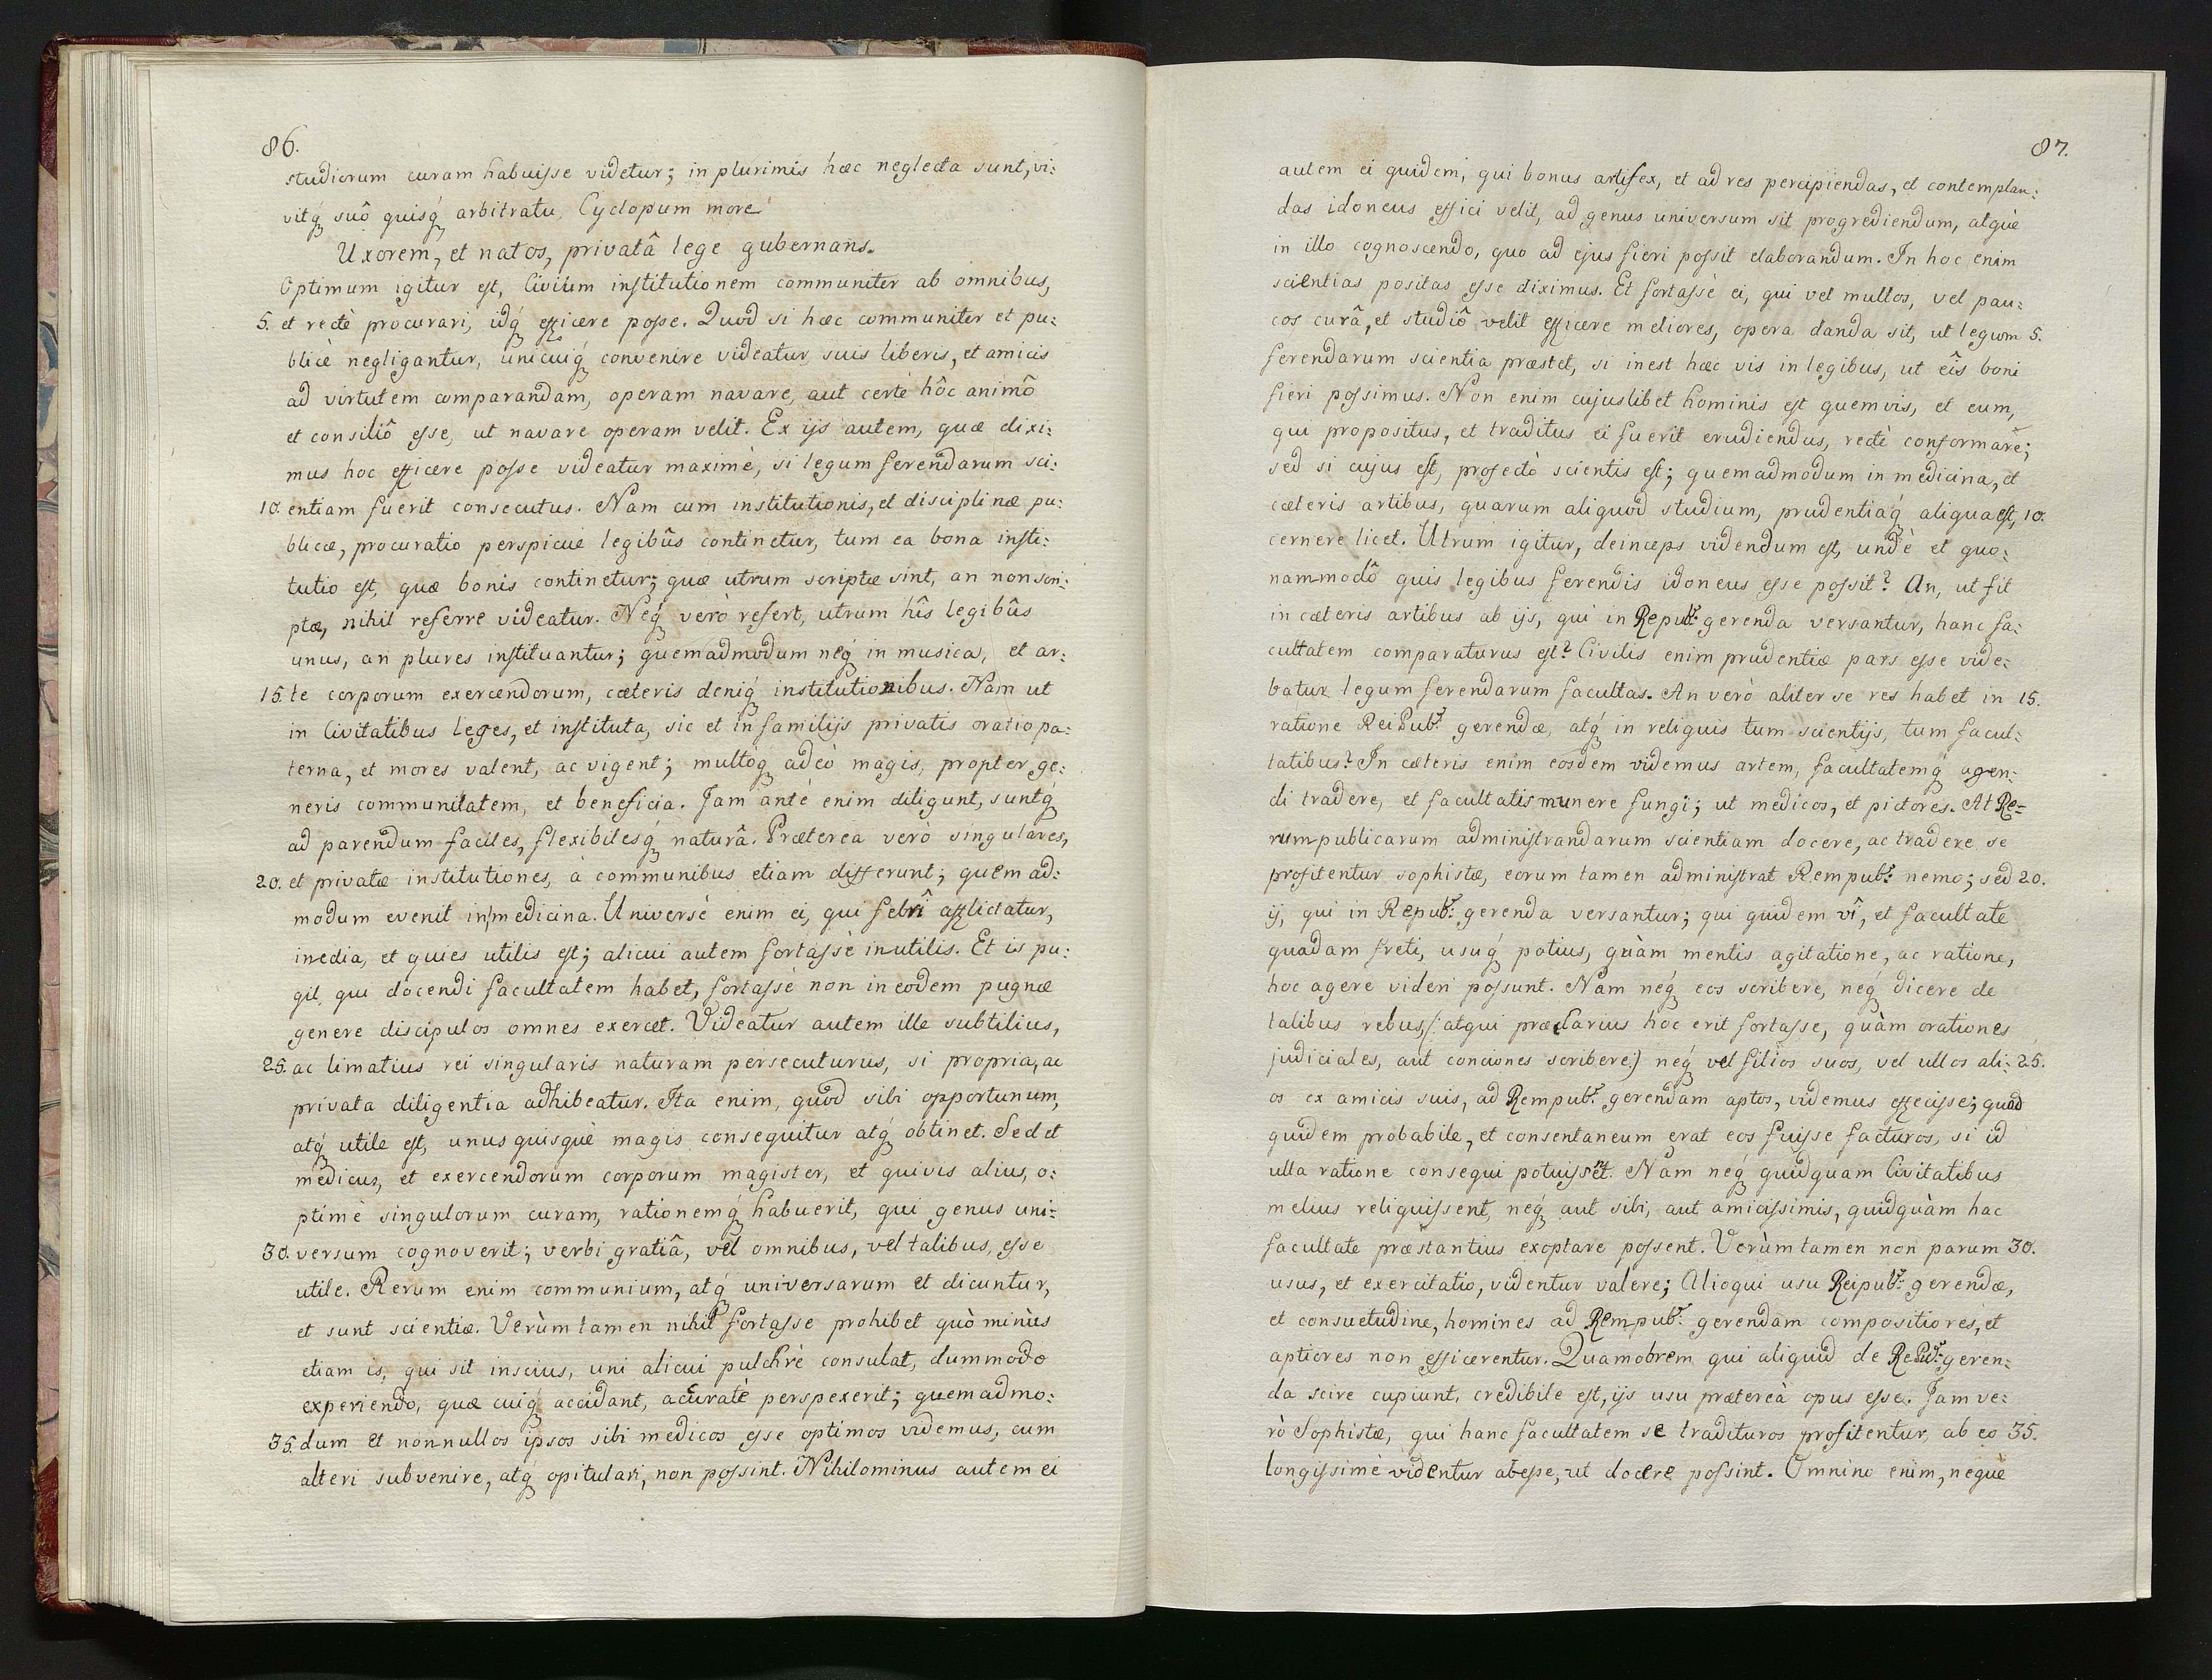 86.
studiorum curam habuisse videtur; in plurimis hæc neglecta sunt, vi:
vitq́ suô quisq́ arbitratu, Cyclopum more
Uxorem, et natos, privatâ lege gubernans.
Optimum igitur est, Civium institutionem communiter ab omnibus,
5. et rectè procurari, idq́ efficere posse. Quod si hæc communiter et pu:
blicè negligantur, unicuiq́ convenire videatur, suis liberis, et amicis
ad virtutem comparandam, operam navare, aut certè hôc animô
et consiliô esse, ut navare operam velit. Ex ijs autem, quæ dixi:
mus hoc efficere posse videatur maximè, si legum ferendarum sci:
10. entiam fuerit consecutus. Nam cum institutionis, et disciplinæ pu:
blicæ, procuratio perspicuè legibûs continetur, tum ea bona insti:
tutio est, quæ bonis continetur; quæ utrum scriptæ sint, an non scri:
ptæ, nihil referre videatur. Neq́ verò refert, utrum hîs legibûs
unus, an plures instituantur; quemadmodum neq́ in musica, et ar:
15. te corporum exercendorum, cæteris deniq́ institutionibus. Nam ut
in Civitatibus leges, et instituta, sic et in familijs privatis oratio pa:
terna, et mores valent, ac vigent; multoq́ adeò magis, propter ge:
neris communitatem, et beneficia. Jam antè enim diligunt, suntq́
ad parendum faciles, flexibilesq́ naturâ. Præterea verò singulares,
20. et privatæ institutiones, à communibus etiam differunt; quemad:
modum evenit in medicina. Universè enim ei, qui febrî afflictatur,
inedia, et quies utilis est; alicui autem fortassè inutilis. Et is pu:
gil, qui docendi facultatem habet, fortassè non in eodem pugnæ
genere discipulos omnes exercet. Videatur autem ille subtilius,
25. ac limatius rei singularis naturam persecuturus, si propria, ac
privata diligentia adhibeatur. Ita enim, quod sibi opportunum,
atq́ utile est, unusquisquè magis consequitur atq́ obtinet. Sed et
medicus, et exercendorum corporum magister, et quivis alius, o:
ptimè singulorum curam, rationemq́ habuerit, qui genus uni:
30. versum cognoverit; verbi gratiâ, vel omnibus, vel talibus, esse
utile. Rerum enim communium, atq́ universarum et dicuntur,
et sunt scientiæ. Verùm tamen nihil fortasse prohibet quò minùs
etiam is, qui sit inscius, uni alicui pulchrè consulat, dummodo
experiendo, quæ cuiq́ accidant, acuratè perspexerit; quemadmo:
35. dum et nonnullos ipsos sibi medicos esse optimos videmus, cum
alteri subvenire, atq́ opitulari, non possint. Nihilominus autem ei
87.
autem ei quidem, qui bonus artifex, et ad res percipiendas, et contemplan:
das idoneus effici velit, ad genus universum sit progrediendum, atquè
in illo cognoscendo, quo ad ejus fieri possit elaborandum. In hoc enim
scientias positas esse diximus. Et fortassè ei, qui vel multos, vel pau:
cos curâ, et studiô velit efficere meliores, opera danda sit, ut legum 5.
ferendarum scientia præstet, si inest hæc vis in legibus, ut eîs boni
fieri possimus. Non enim cujuslibet hominis est quemvis, et eum,
qui propositus, et traditus ei fuerit erudiendus, rectè conformare;
sed si cujus est, profectò scientis est; quemadmodum in medicina, et
cæteris artibus, quarum aliquod studium, prudentiaq́ aliqua est, 10.
cernere licet. Utrum igitur, deinceps videndum est, undè et quo:
nammodô quis legibus ferendis idoneus esse possit? An, ut fit
in cæteris artibus ab ijs, qui in Repub: gerenda versantur, hanc fa:
cultatem comparaturus est? Civilis enim prudentiæ pars esse vide:
batur legum ferendarum facultas. An verò aliter se res habet in 15.
ratione ReiPub: gerendæ, atq́ in reliquis tum scientijs, tum facul:
tatibus? In cæteris enim eosdem videmus artem, facultatemq́ agen:
di tradere, et facultatis munere fungi; ut medicos, et pictores. At Re=
rumpublicarum administrandarum scientiam docere, ac tradere se
profitentur sophistæ, eorum tamen administrat Rempub: nemo; sed 20.
ij, qui in Repub: gerenda versantur; qui quidem vî, et facultate
quadam freti, usuq́ potius, quàm mentis agitatione, ac ratione,
hoc agere videri possunt. Nam neq́ eos scribere, neq́ dicere de
talibus rebus, (:atqui præclarius hoc erit fortasse, quàm orationes
judiciales, aut conciones scribere:) neq́ vel filios suos, vel ullos ali: 25.
os ex amicis suis, ad Rempub: gerendam aptos, videmus effecisse; quod
quidem probabile, et consentaneum erat eos fuisse facturos, si id
ulla ratione consequi potuissent. Nam neq́ quidquam Civitatibus
melius reliquissent, neq́ aut sibi, aut amicissimis, quidquàm hac
facultate præstantius exoptare possent. Verùm tamen non parum 30.
usus, et exercitatio, videntur valere; Alioqui usu Reipub: gerendæ,
et consuetudine, homines ad Rempub: gerendam compositiores, et
aptiores non efficerentur. Quamobrem qui aliquid de RePub: geren:
da scire cupiunt, credibile est, ijs usu prætereà opus esse. Jam ve:
rò Sophistæ, qui hanc facultatem se tradituros profitentur, ab eo 35.
longissimè videntur abesse, ut docere possint. Omnino enim, nequè